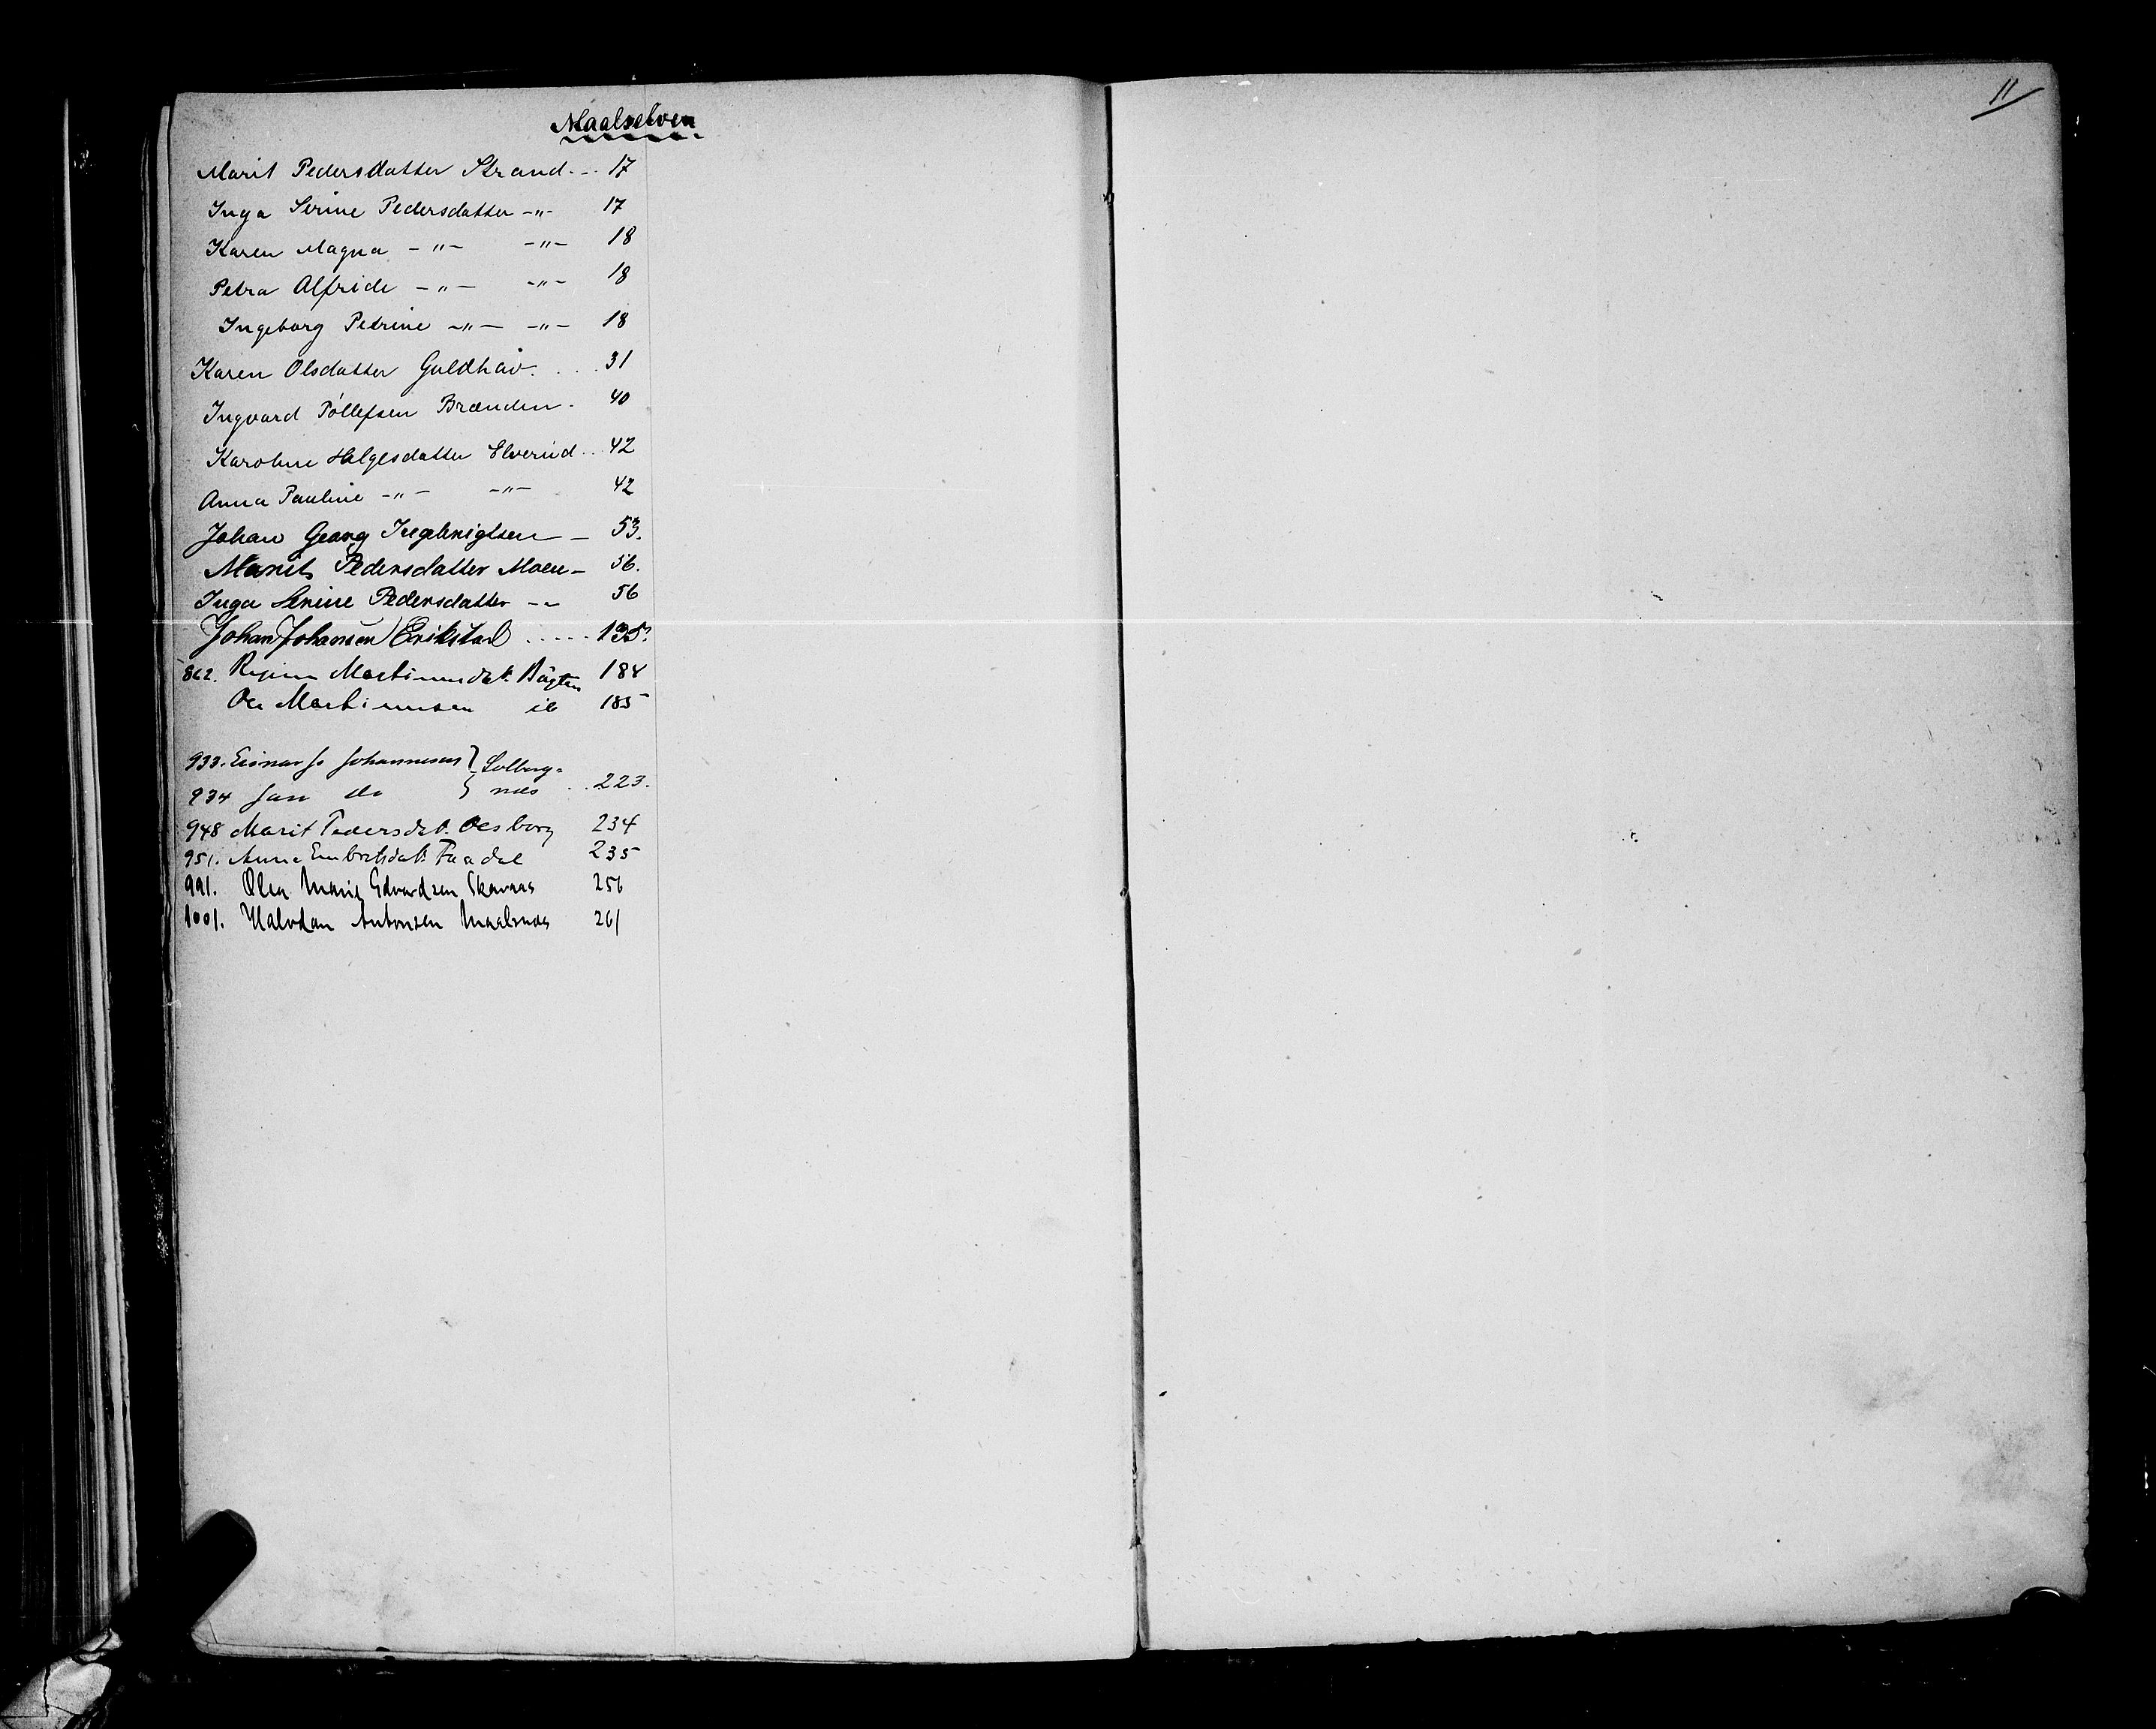 Maalselven
Marit Pedersdatter Strand . . . 17
Inga Serine Pedersdatter -"- 17
Karen Magna -"- -"- 18
Petra Alfride -"- -"- 18
Ingeborg Petrine -"- -"- 18
Karen Olsdatter Guldhav . . . . 31
Ingvard Tollefsen Brænden . 40
Karoline Helgesdatter Elverud . . 42
Anna Pauline -"- -"- 42
Johan Georg Ingebrigtsen - 53.
Marit Pedersdatter Moen - 56.
Inga Serine Pedersdatter -"- 56
Johan Johansen Erikstad . . . . . 135.
862. Martinusdat. 184
Ole Martinusen ib 185
933. Einar J. Johannesen } Solberg-
934 Jan do } næs . . 223.
948 Marit Pedersdat. Olsborg 234
951. Anna Embretsdat. 235
991. Olea Marie Edvardsen 256
1001. Halvdan Antonsen Maalsnes 261
11